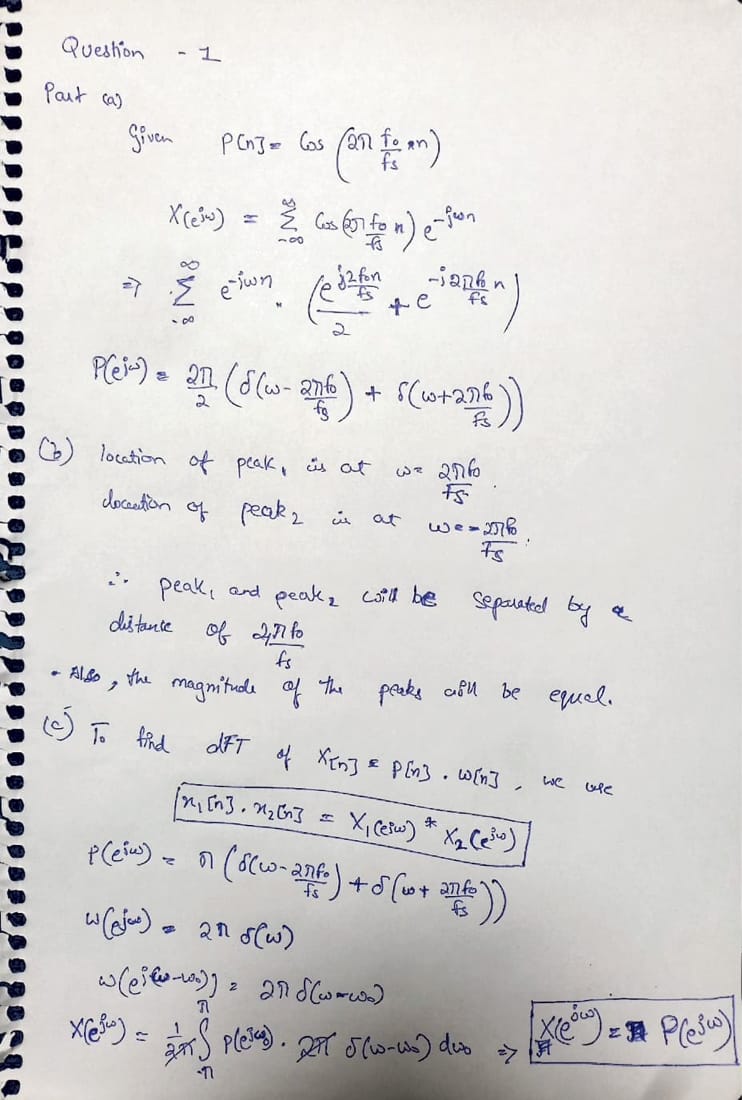 Question - 1
Part (a)
Given P[n] = Cos (2π f₀/fs n)
X(e^jω) = ∞ Σ -∞ Cos(2π f₀/fs n) e^-jωn
=> ∞ Σ -∞ e^-jωn . (e^(j2f₀n/fs)/2 + e^(-j2πf₀n/fs))
P(e^jω) = 2π/2 (δ(ω - 2πf₀/fs) + δ(ω + 2πf₀/fs))
(b) location of peak₁ is at ω = 2πf₀/fs.
location of peak₂ is at ω = -2πf₀/fs.
∴ peak₁ and peak₂ will be separated by a
distance of 2πf₀/fs
- Also, the magnitude of the peaks will be equal.
(c) To find dFT of X[n] = P[n] . w[n], we use
x₁[n] . x₂[n] = X₁(e^jω) * X₂(e^jω)
P(e^jω) = π (δ(ω - 2πf₀/fs) + δ(ω + 2πf₀/fs))
W(e^jω) = 2π δ(ω)
W(e^j(ω-ω₀)) = 2π δ(ω-ω₀)
X(e^jω) = 1/2π π ∫ -π P(e^jω₀) . 2π δ(ω-ω₀) dω₀ => X(e^jω) = P(e^jω)